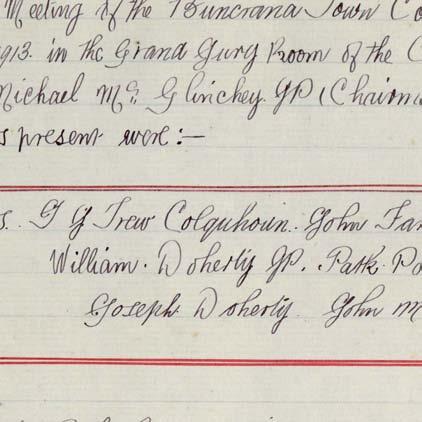 Meeting of the Buncrana Town Co
1913. in the Grand Jury Room of the C
Michael Mc Glinchey. JP (Chairm
s present were:—
s. T G Trew Colquhoun. John Far
William. Doherty JP. Patk. Po
Joseph Doherty John M